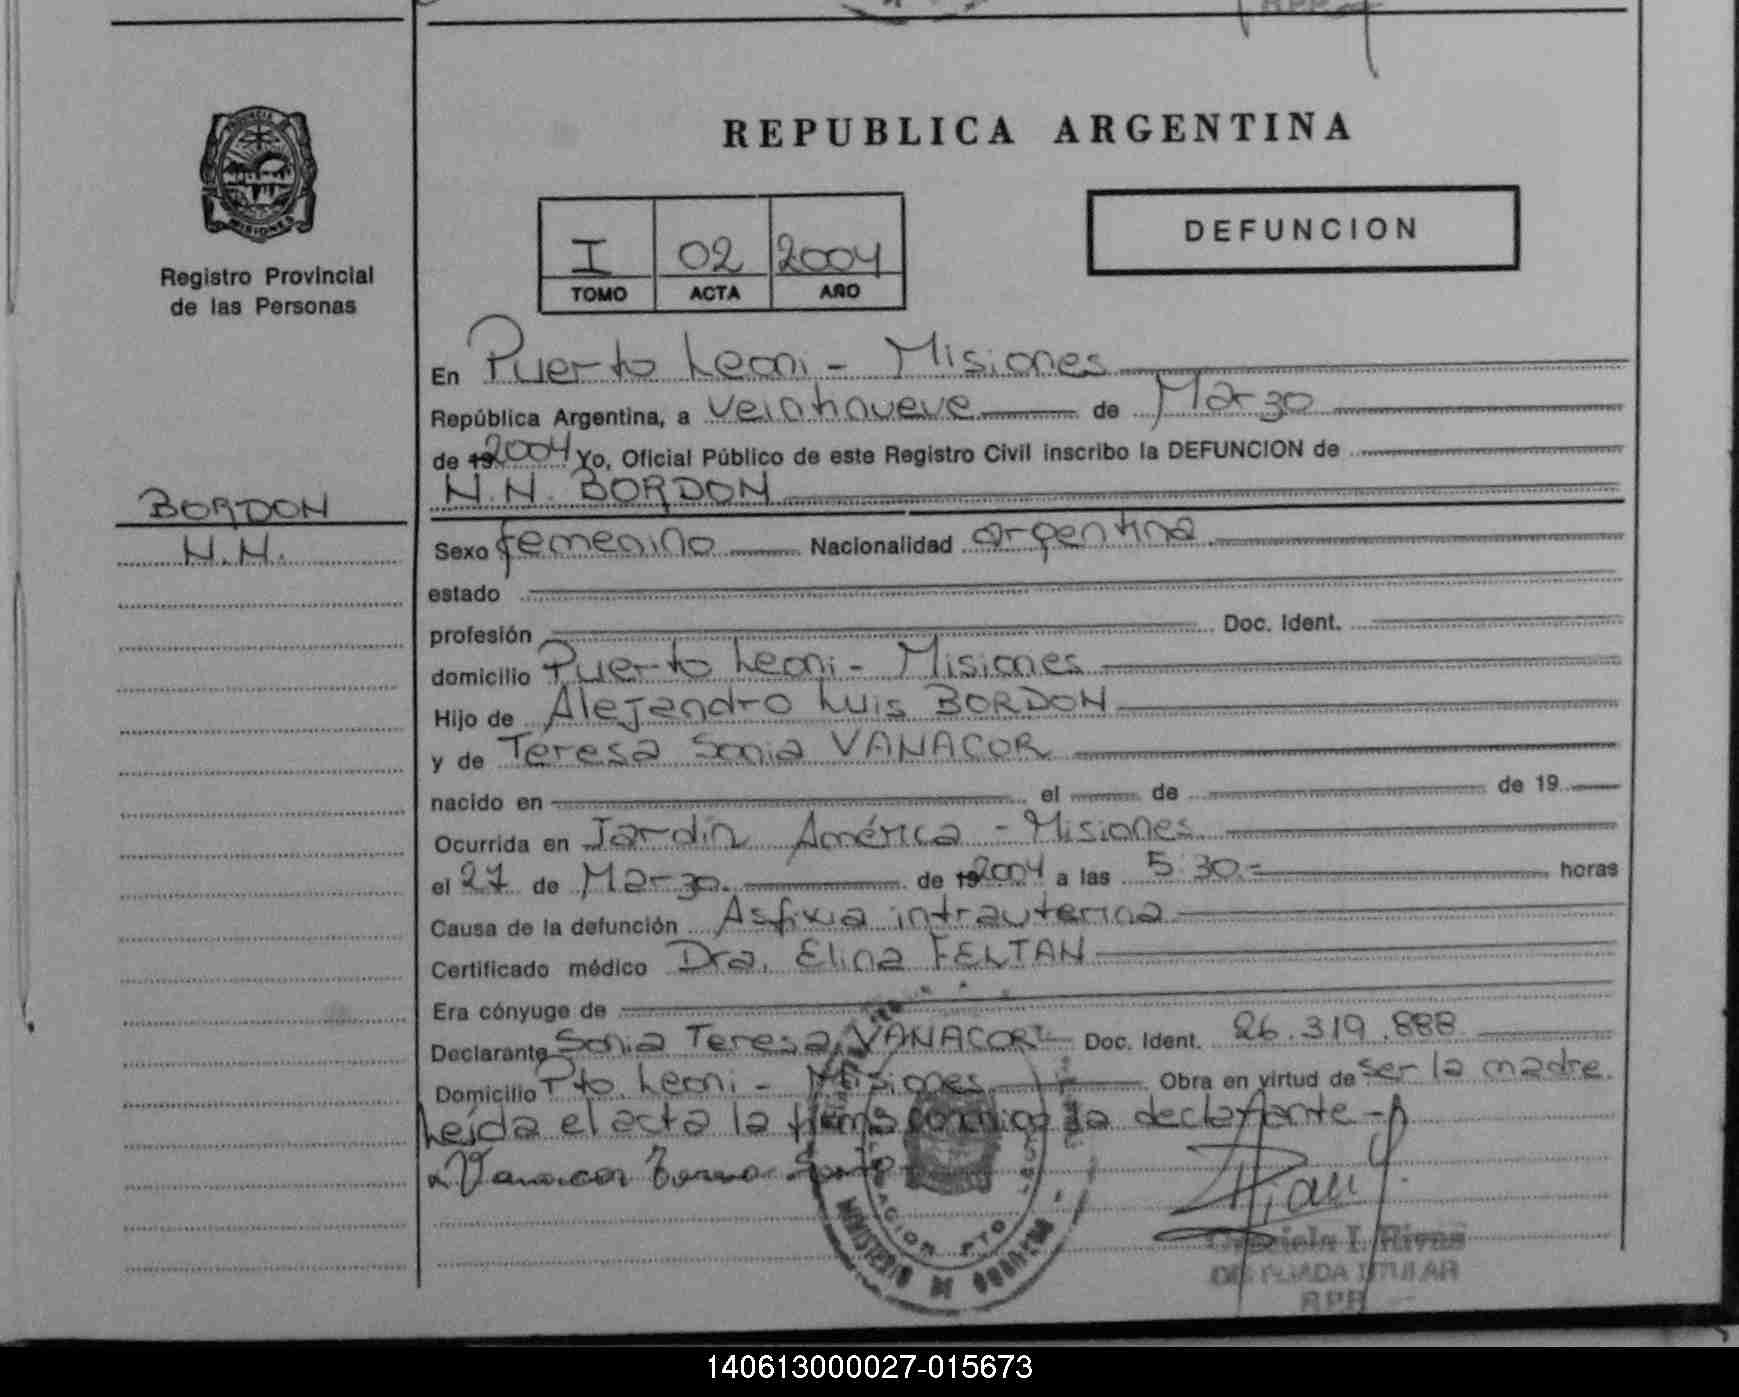 REPUBLICA ARGENTINA
DEFUNCION
I 02 2004
TOMO ACTA AÑO
PROVINCIA
MISIONES
Registro Provincial
de las Personas
BORDON
N.N.
En Puerto Leoni - Misiones
República Argentina, a veintinueve de Marzo
de 19 2004 Yo, Oficial Público de este Registro Civil inscribo la DEFUNCION de
N.N. BORDON
Sexo femenino Nacionalidad argentina
estado
profesión Doc. Ident.
domicilio Puerto Leoni - Misiones
Hijo de Alejandro Luis BORDON
y de Teresa Sonia VANACOR
nacido en el de de 19
Ocurrida en Jardín América - Misiones
el 27 de Marzo. de 19 2004 a las 5:30.- horas
Causa de la defunción Asfixia intrauterina
Certificado médico Dra. Elina FELTAN
Era cónyuge de
Declarante Sonia Teresa VANACOR Doc. Ident. 26.319.888
Domicilio Pto. Leoni - Misiones Obra en virtud de ser la madre.
Leída el acta la firma conmigo la declarante -
Vanacor Teresa Sonia
MINISTERIO DE GOBIERNO
PTO
Graciela I. Rivas
DELEGADA TITULAR
RPP
140613000027-015673